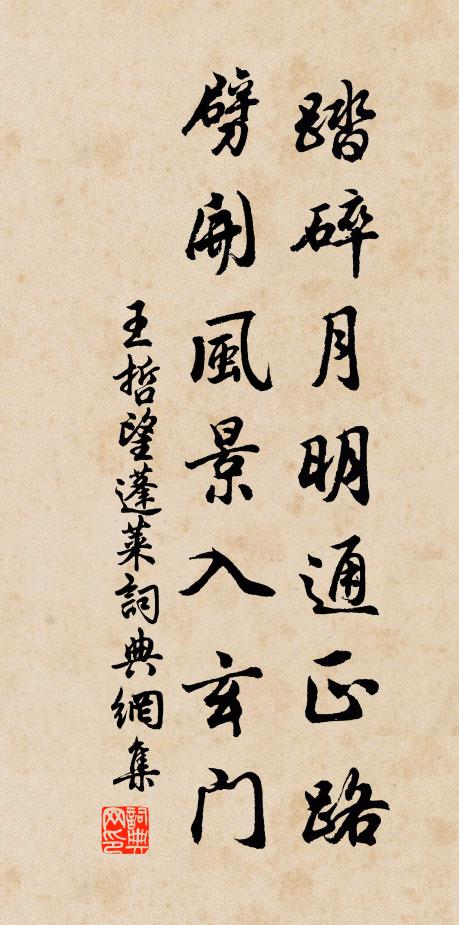 踏碎月明通正路
劈開風景入玄門
王哲望蓬萊詞典網集
詞典网印